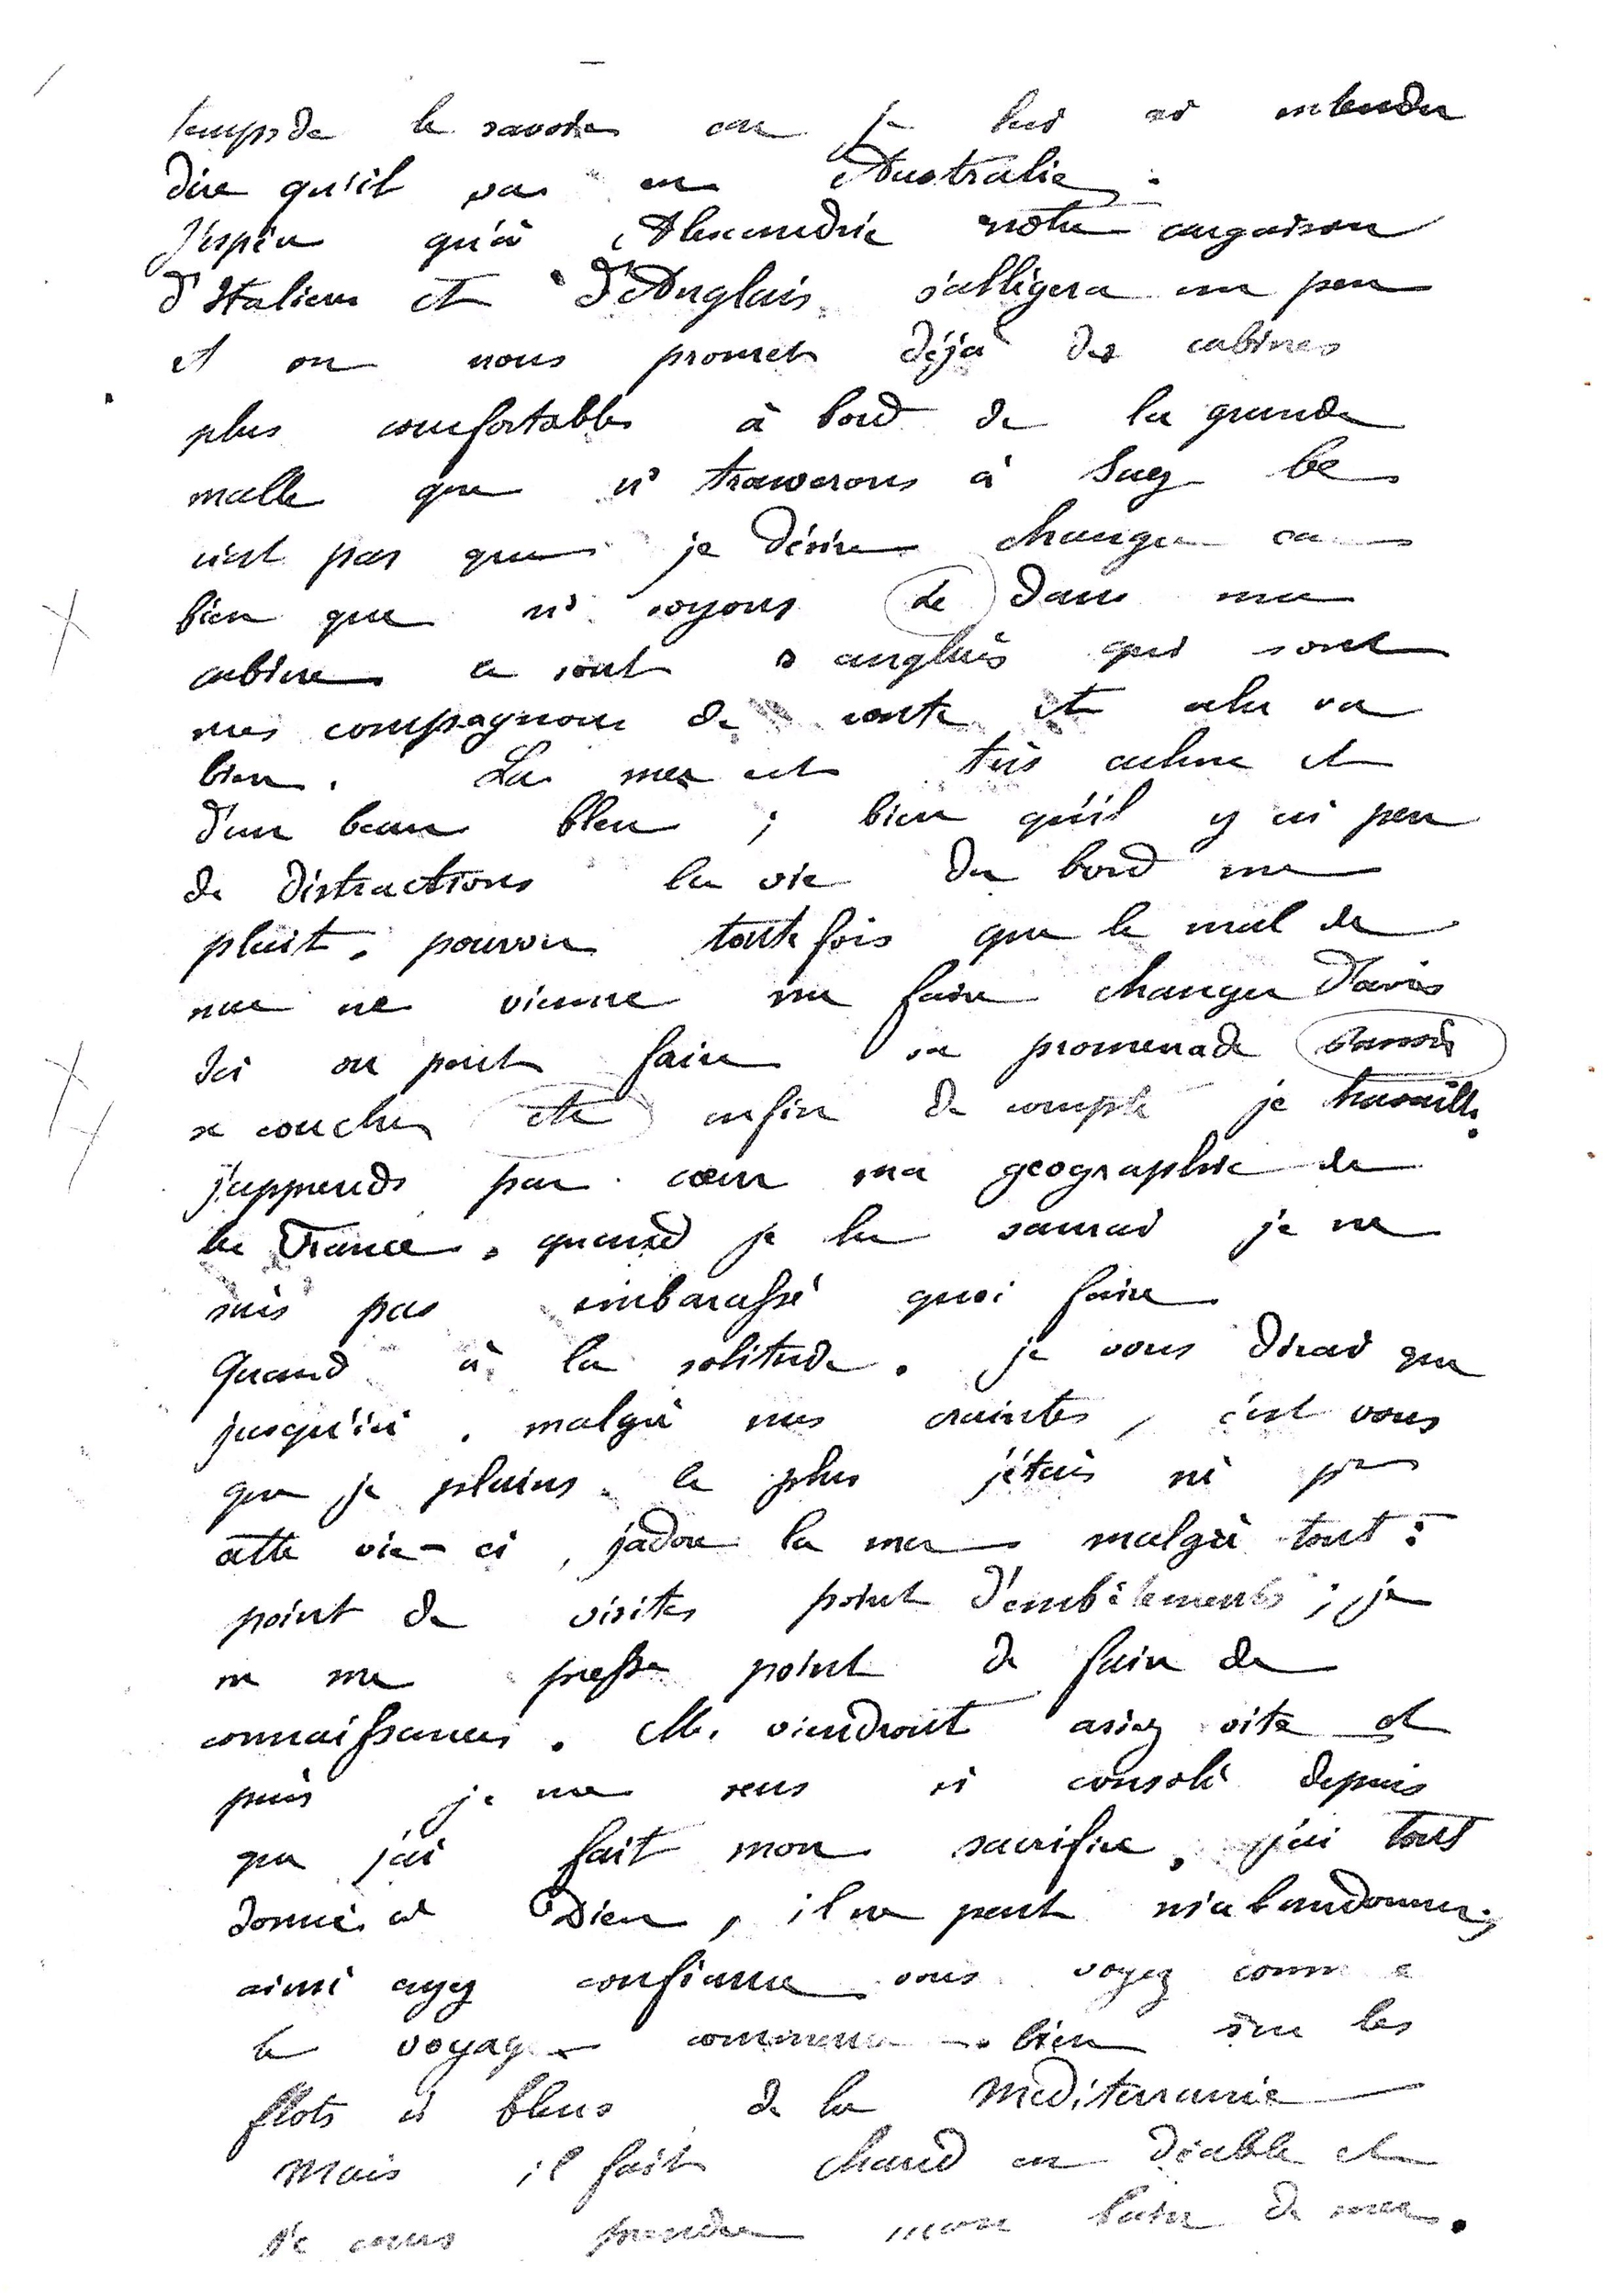 temps de le savoir car je lui ai entendu
dire qu'il va en Australie.
J'espère qu'à Alexandrie notre cargaison
d'Italiens et d'Anglais s'allégera un peu
et on nous promet déjà des cabines
plus confortables à bord de la grande
malle que ns trouverons à Suez Ce
n'est pas que je désire changer car
bien que ns soyons de dans ma
cabine ce sont anglais qui sont
mes compagnons de route et cela va
bien. La mer est très calme et
d'un beau bleu ; bien qu'il y ai peu
de distractions la vie du bord me
plait, pourvu toutefois que le mal de
mer ne vienne me faire changer d'avis
Ici on peut faire sa promenade
se coucher etc enfin de compte je travaille.
j'apprends par cœur ma geographie de
la France, quand je la saurai je ne
suis pas embarassé quoi faire
Quand à la solitude. je vous dirai que
jusqu'ici, malgré mes craintes, c'est vous
que je plains le plus j'étais né pr
cette vie-ci, j'adore la mer malgré tout :
point de visites point d'embêtements ; je
ne me presse point de faire de
connaissances. Elles viendront assez vite et
puis je me sens si consolé depuis
que j'ai fait mon sacrifice, j'ai tout
donné à Dieu, il ne peut m'abandonner ;
ainsi ayez confiance vous voyez comme
le voyage commence bien sur les
flots si bleus de la Mediterranée
Mais il fait chaud en diable et
je cours prendre mon bain de mer.